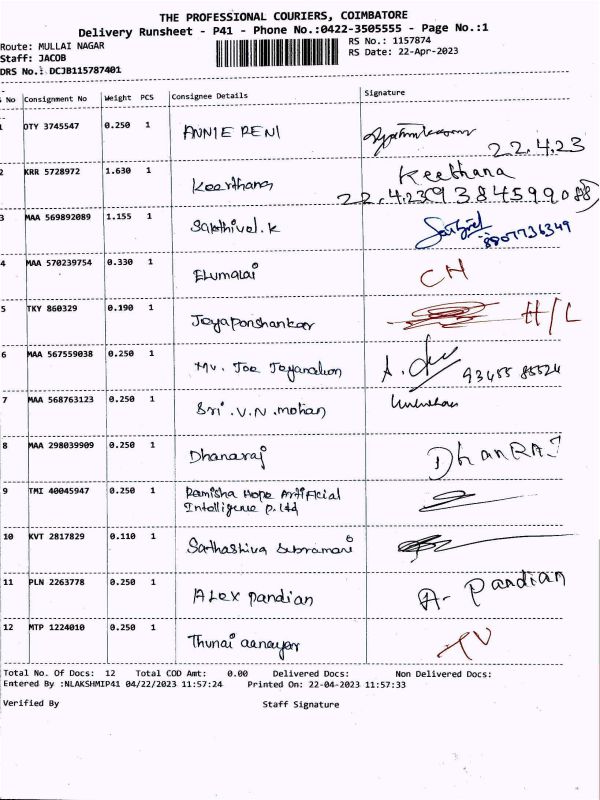 THE PROFESSIONAL COURIERS, COIMBATORE
Delivery Runsheet - P41 - Phone No.:0422-3505555 - Page No.:1
Route: MULLAI NAGAR RS No.: 1157874
Staff: JACOB RS Date: 22-Apr-2023
DRS No.: DCJB115787401
S No Consignment No Weight PCS Consignee Details Signature
1 OTY 3745547 0.250 1 ANNIE RENI 22.4.23
2 KRR 5728972 1.630 1 Keerthana Keethana
22.4.23 9384599088
3 MAA 569892089 1.155 1 Sakthivel.K Sakthivel
8807736349
4 MAA 570239754 0.330 1 Elumalai CH
5 TKY 860329 0.190 1 H/L
6 MAA 567559038 0.250 1 Mr. Joe 93455 85524
7 MAA 568763123 0.250 1 Sri.V.N.mohan
8 MAA 298039909 0.250 1 Dhanaraj DhanRAJ
9 TMI 40045947 0.250 1 Ramisha Hope Artificial
Intelligence p.ltd
10 KVT 2817829 0.110 1 Sathashiva Subramani
11 PLN 2263778 0.250 1 Alex pandian A- Pandian
12 MTP 1224010 0.250 1 Thunai aanayar TV
Total No. Of Docs: 12 Total COD Amt: 0.00 Delivered Docs: Non Delivered Docs:
Entered By :NLAKSHMIP41 04/22/2023 11:57:24 Printed On: 22-04-2023 11:57:33
Verified By Staff Signature